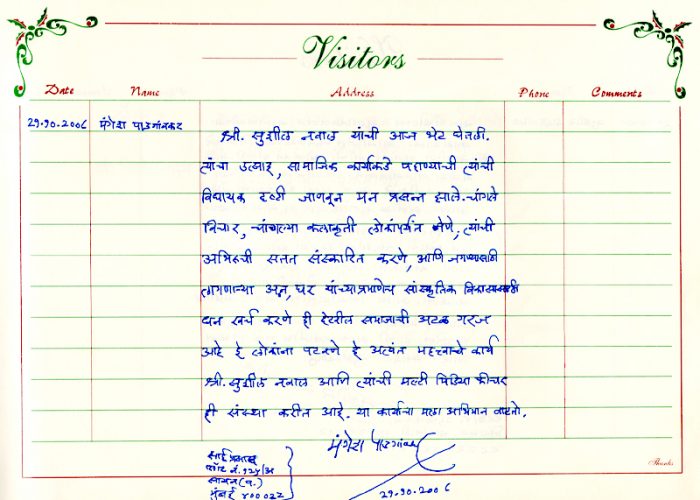 Visitors
Date Name Address Phone Comments
२९.१०.२००६ मंगेश पाडगांवकर
श्री. सुशील नवाल यांची आज भेट घेतली.
त्यांचा उत्साह, सामाजिक कार्याकडे पहाण्याची त्यांची
विधायक दृष्टी जाणवून मन प्रसन्न झाले. चांगले
विचार, चांगल्या कलाकृती लोकांपर्यंत नेणे, त्यांची
अभिरुची सतत संस्कारित करणे, आणि जगण्यासाठी
लागणाऱ्या अन्न, घर यांच्याप्रमाणेच सांस्कृतिक विकासासाठी
धन खर्च करणे ही देखील समाजाची अटळ गरज
आहे हे लोकांना पटवणे हे अत्यंत महत्त्वाचे कार्य
श्री. सुशील नवाल आणि त्यांची मल्टी मिडिया फीचर
ही संस्था करीत आहे. या कार्याचा मला अभिमान वाटतो.
मंगेश पाडगांवकर
सायन (प.)
मुंबई ४०००२२
२९.१०.२००६